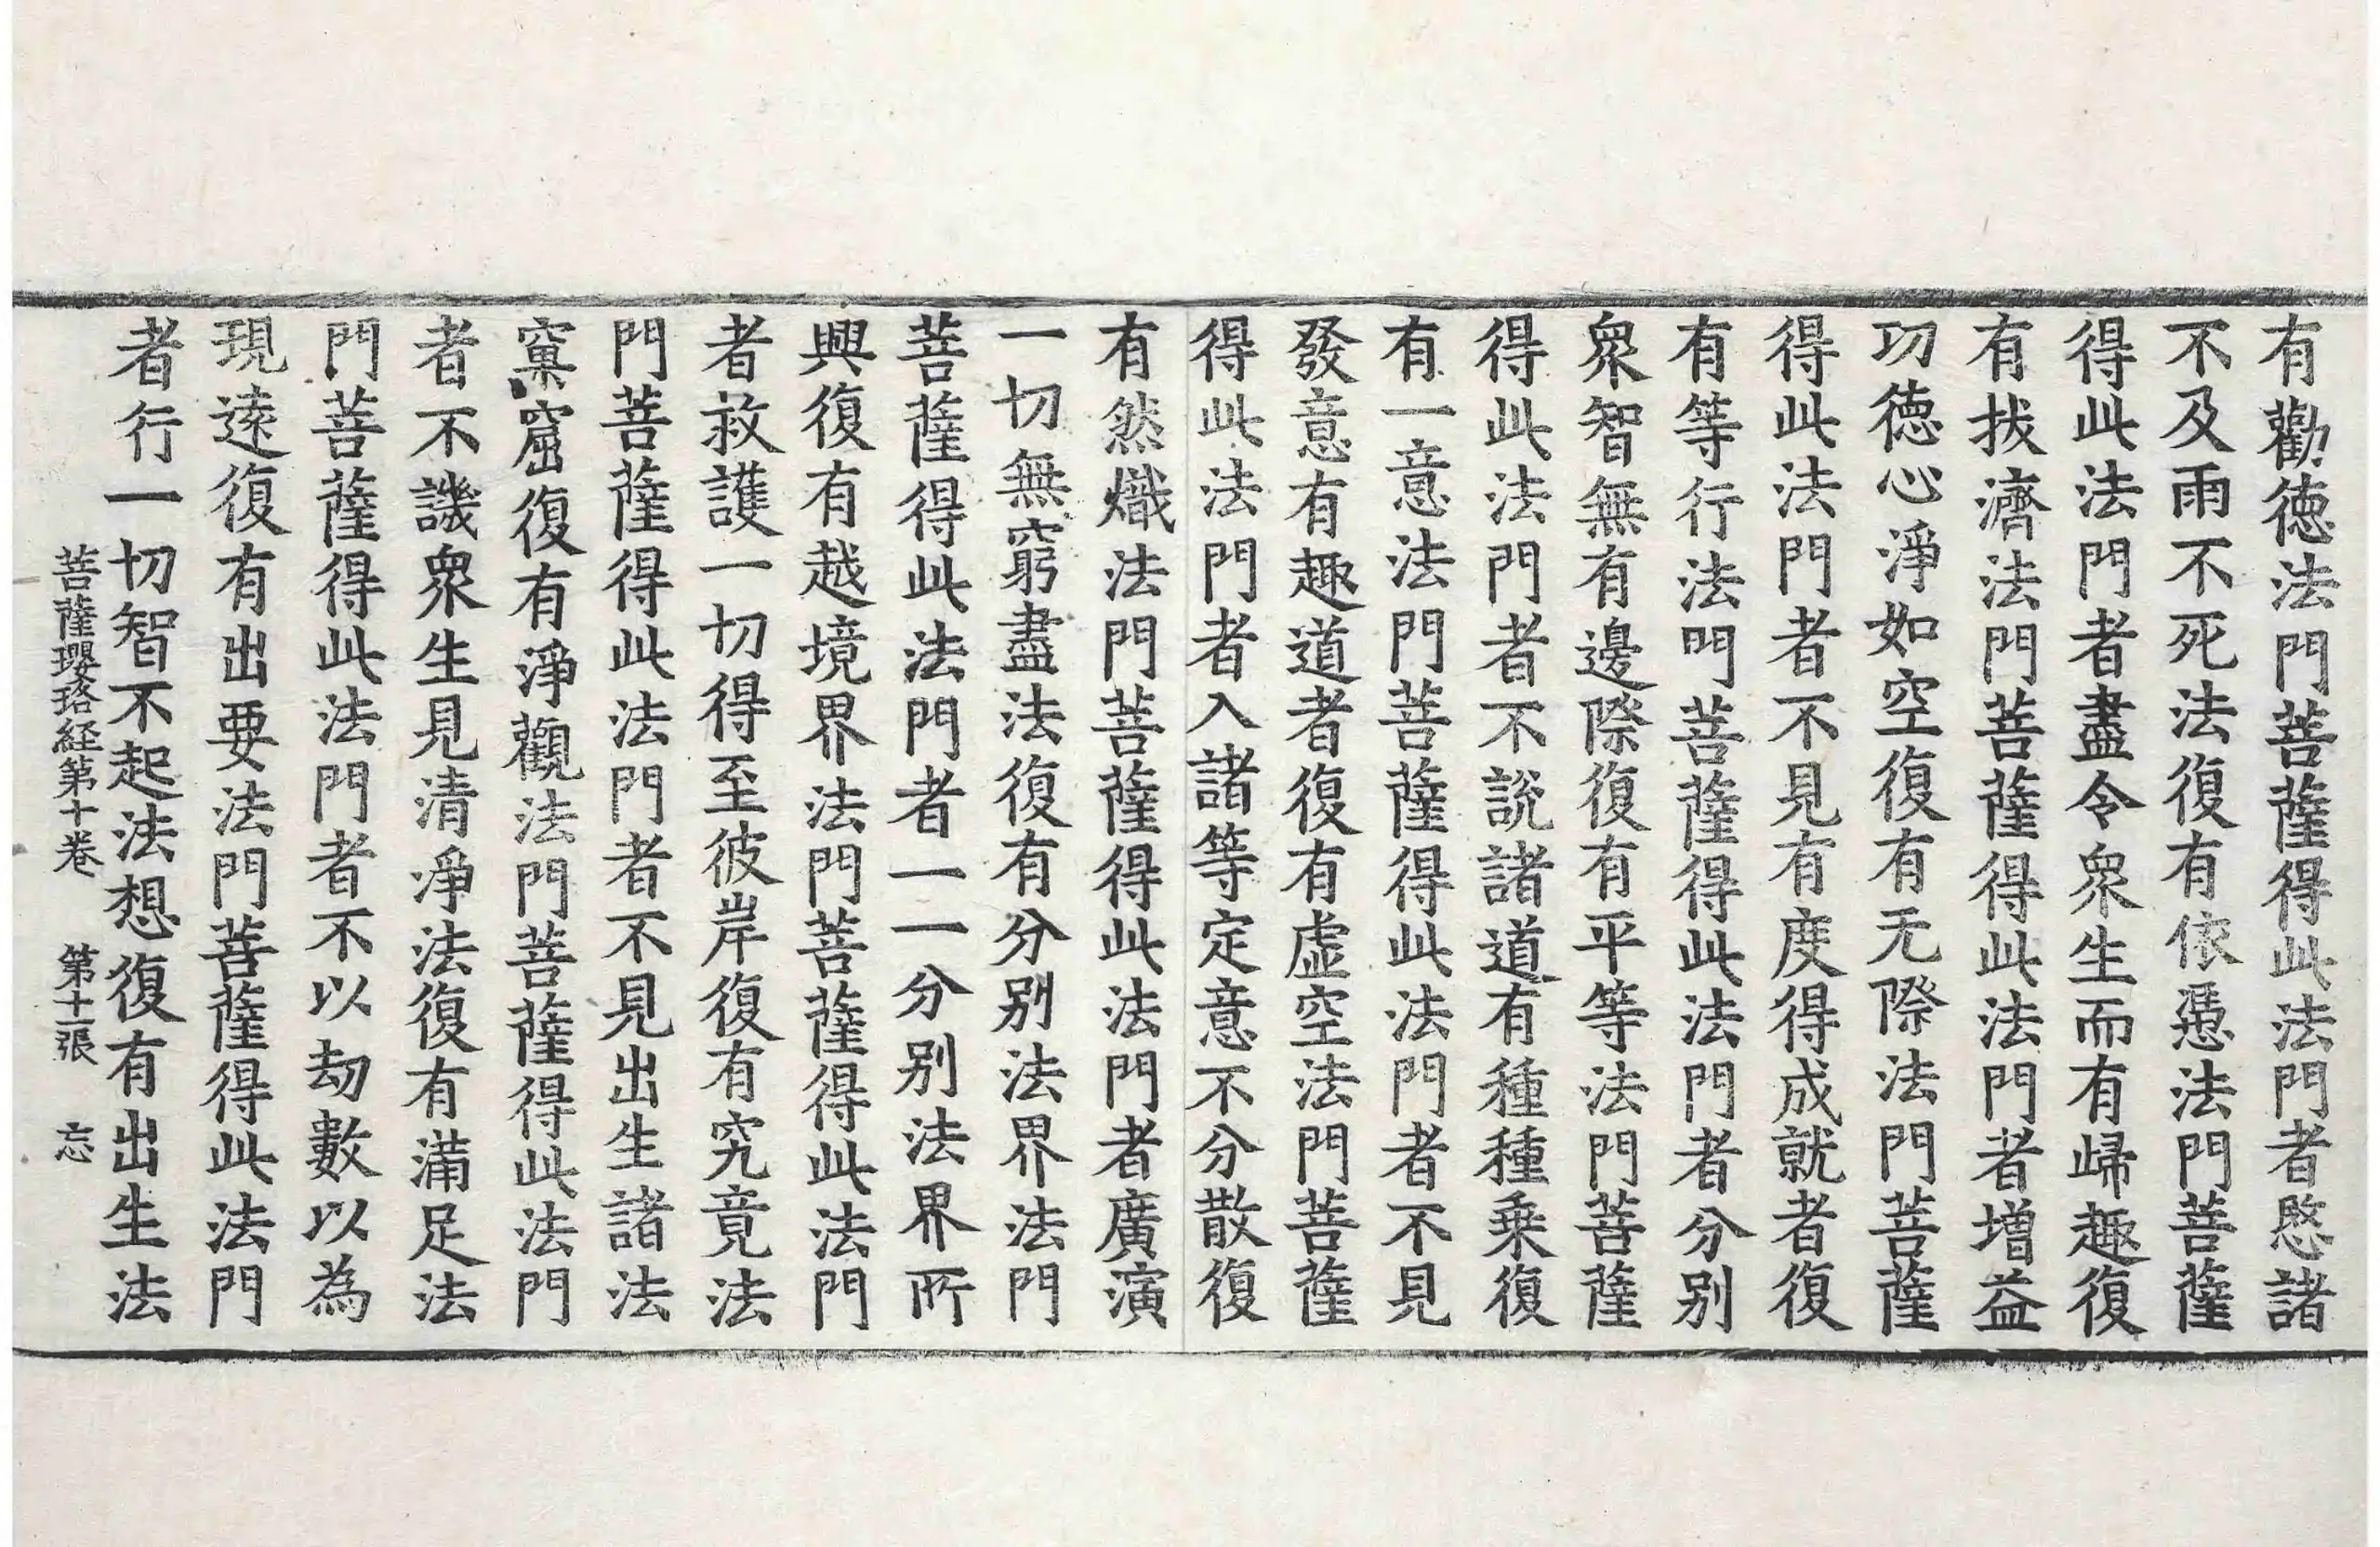 有勸徳法門菩薩得此法門者愍諸
不及雨不死法復有依憑法門菩薩
得此法門者盡令衆生而有歸趣復
有拔濟法門菩薩得此法門者增益
功徳心淨如空復有无際法門菩薩
得此法門者不見有度得成就者復
有等行法門菩薩得此法門者分别
衆智無有邊際復有平等法門菩薩
得此法門者不說諸道有種種乗復
有一意法門菩薩得此法門者不見
發意有趣道者復有虚空法門菩薩
得此法門者入諸等定意不分散復
有然熾法門菩薩得此法門者廣演
一切無窮盡法復有分别法界法門
菩薩得此法門者一一分别法界所
興復有越境界法門菩薩得此法門
者救護一切得至彼岸復有究竟法
門菩薩得此法門者不見出生諸法
窠窟復有淨觀法門菩薩得此法門
者不譏衆生見清淨法復有滿足法
門菩薩得此法門者不以劫數以為
現遠復有出要法門菩薩得此法門
者行一切智不起法想復有出生法
菩薩瓔珞経第十卷 第十二張 忘